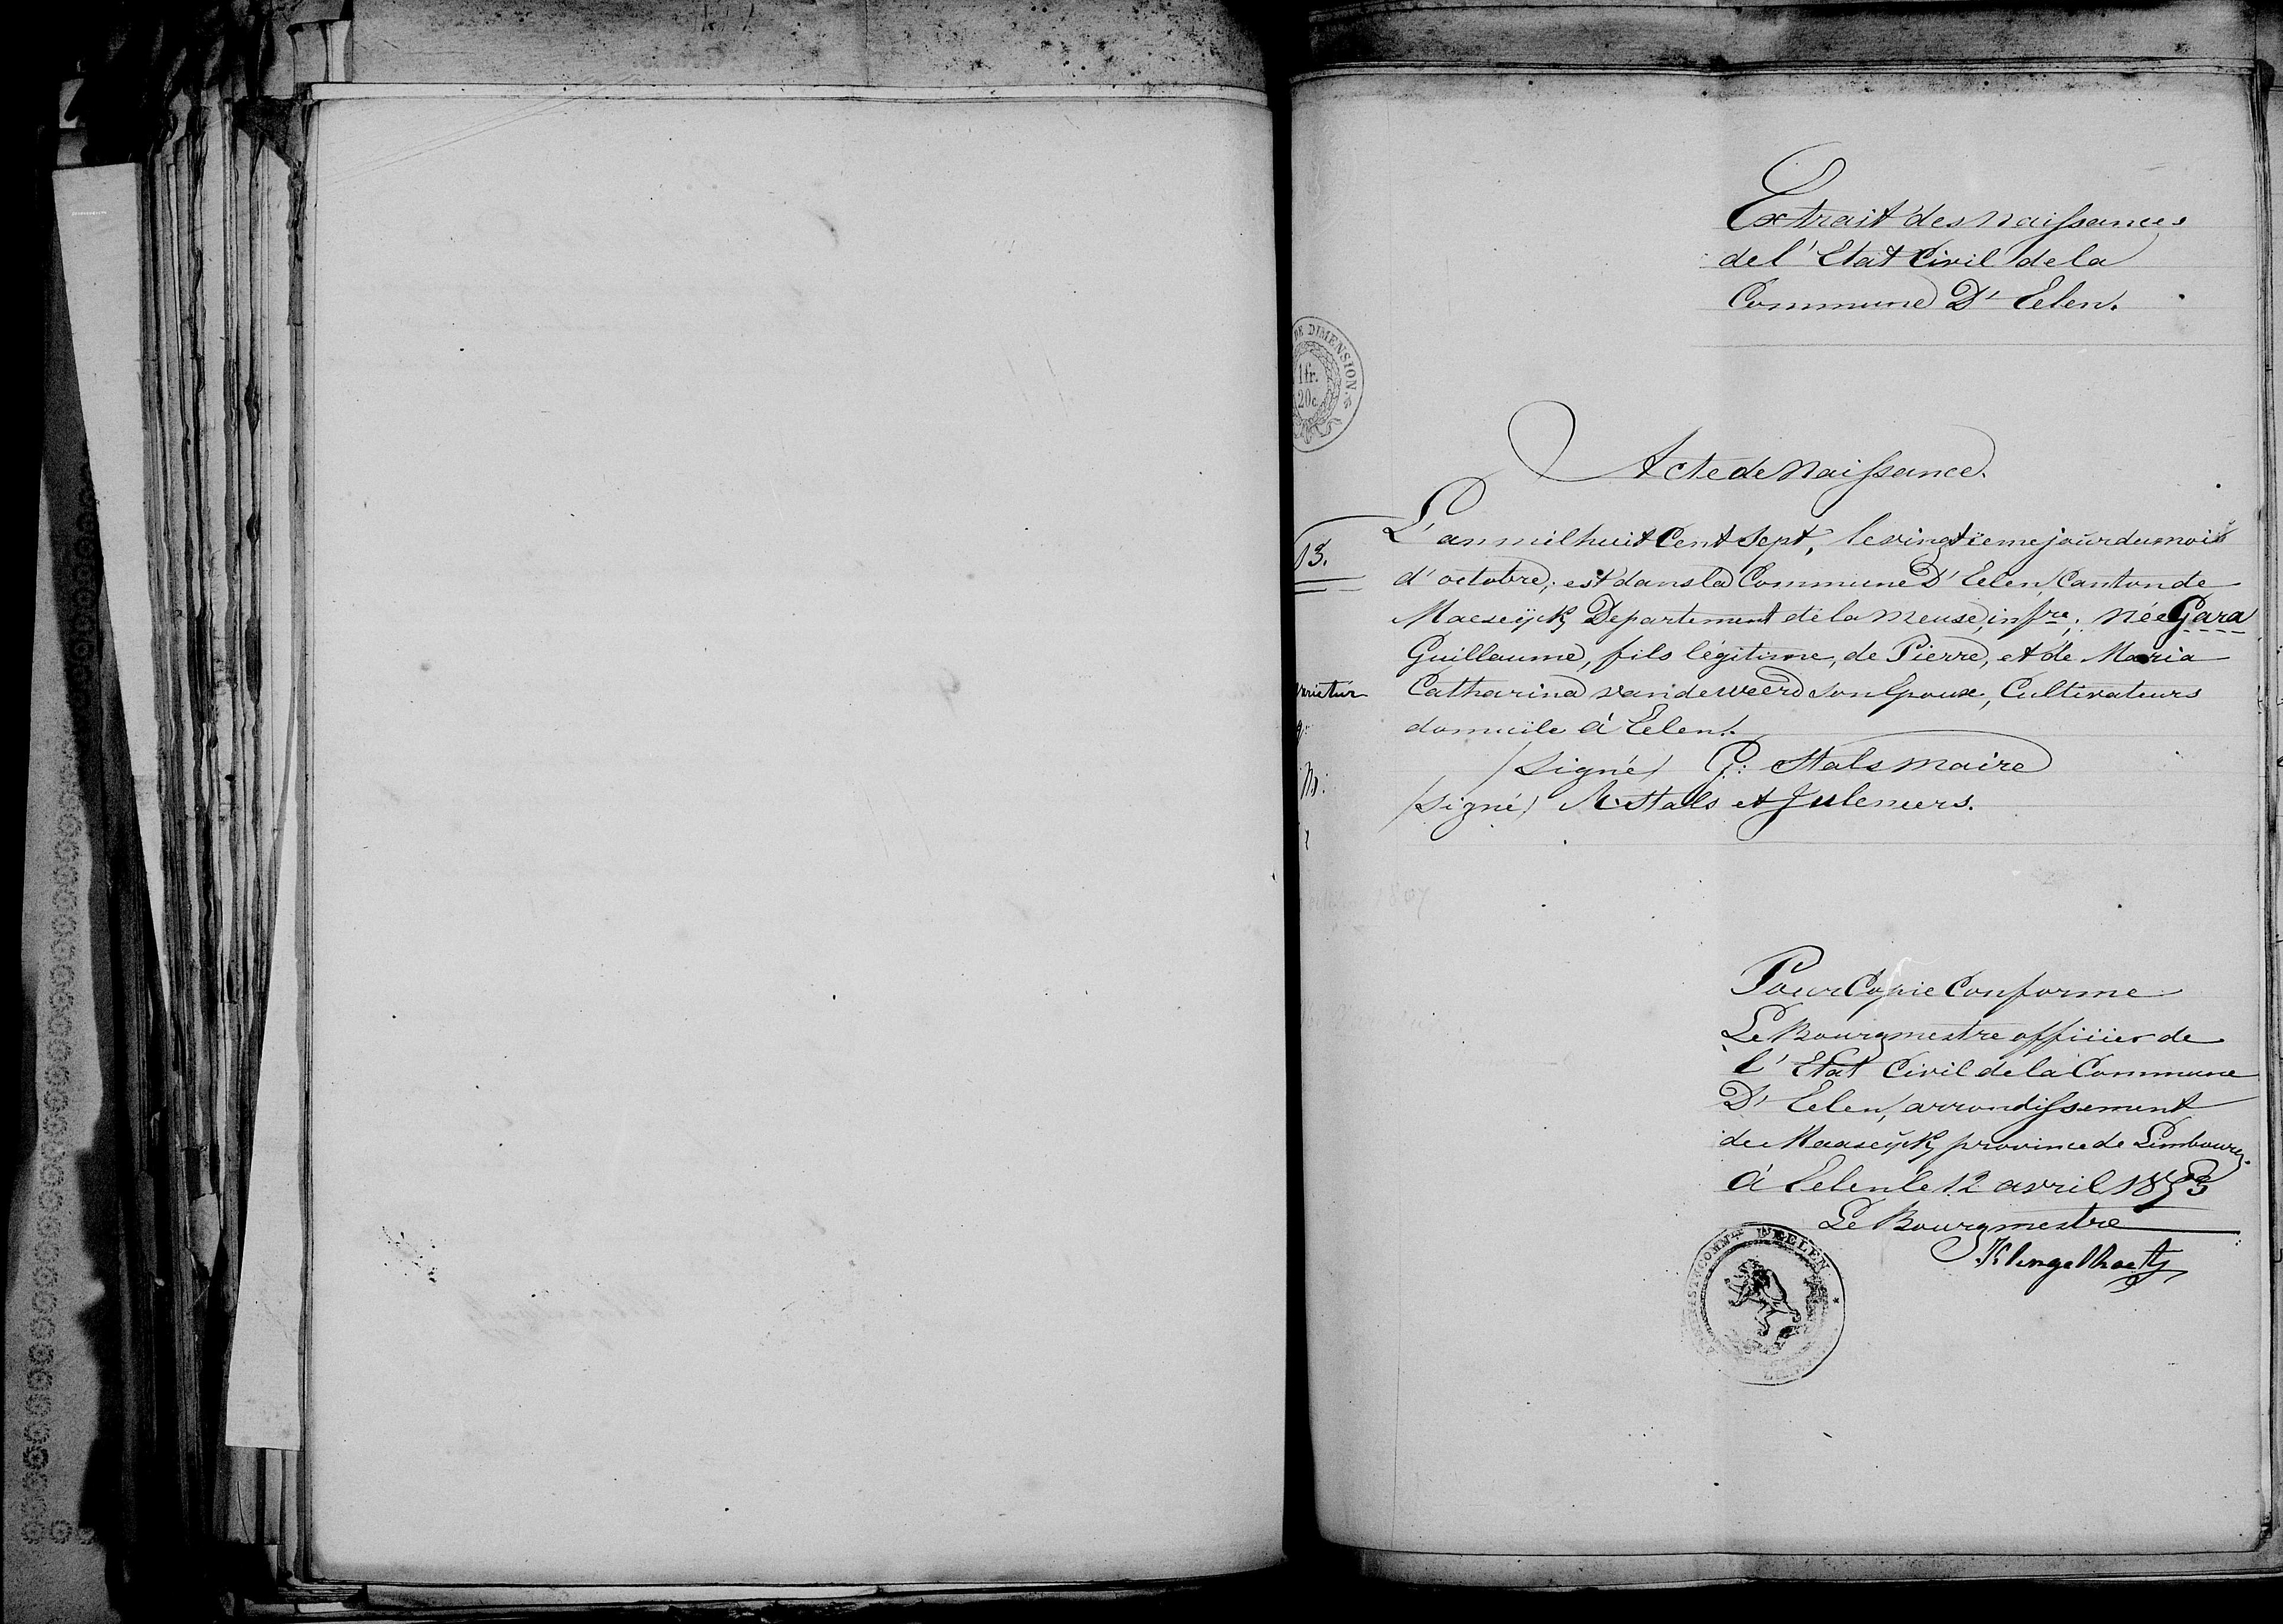 Extrait des Naissances
de l'Etat Civil de la
Commune D'Eelen.
DE DIMENSION
1fr.
20c.
Acte de Naissance.
13.
L'an mil huit Cent Sept, le vingtième jour du mois
d'octobre, est dans la Commune D'Eelen, Canton de
Maeseÿck, Departement de la Meuse, infre; née Gara
Guillaume, fils légitime, de Pierre, et de Maria
Catharina van de weerd Son Epouse, Cultivateurs
varietur
domicile à Eelen.
/signé/ G: Stals Maire
/signé/ A. Stals et Julemers.
Pour Copie Conforme
Le Bourgmestre officier de
l'Etat Civil de la Commune
D'Eelen, arrondissement
de Maaseÿck, province de Limbourg.
à Eelen le 12 avril 1853
Le Bourgmestre
Klingelhoets
COMMLE D'EELEN